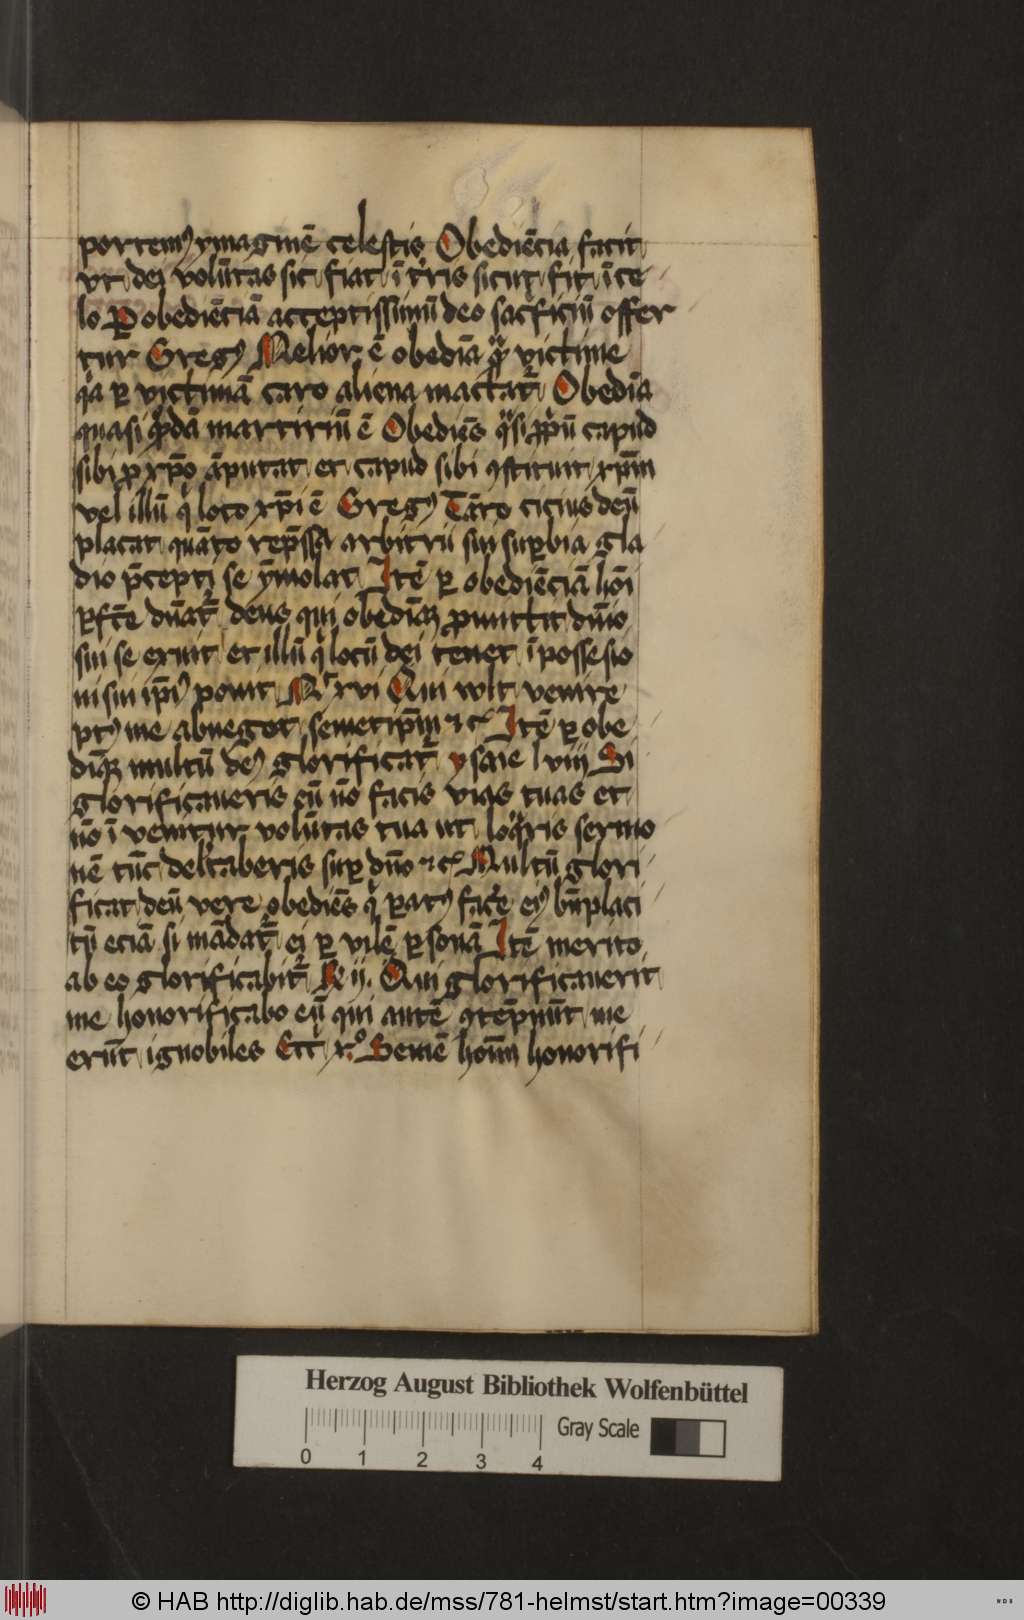 portem9 ymaginē celestis Obediēcia facit
vt dei volūtas sic fiat ī tris sicut fit ī ce
lo P obediēciā acceptissimū deo sacficiū offer
tur Greg9 Melior ē obediā victime
qa p victimā caro aliena mactat Obediā
quasi qdā martiriū ē Obediēs qsi ppriū capud
sibi p xpo āputat et capud sibi 9stituit xpm
vel illū q loco xpi ē Greg9 Tāto cicius deū
placat quāto repssa arbitrii sui supbia gla
dio pcepti se ymolat Itē p obediēciā hōi
deus qui obediēs dnio
sui se exuit et illū q locū dei tenet ī possessio
ni sui ip̄i9 ponit Mr xvi Qui wlt venire
pt9 me abneget semetip̄m etc Itē p obe
multū de9 glorificat ysaie lviij Si
glorificaueris eū nō facis vias tuas et
nō īvenitur volūtas tua ut loqris sermo
nē tūc delcaberis sup dn̄o etc Multū glori
ficat deū vere obediēs q parat9 facē ei9 bn̄placi
tū eciā si mādat ei p vilē psonā Itē merito
ab eo glorificabit R ij. Qui glorificauerit
me honorificabo eū qui autē 9tēpnūt me
erūt ignobiles Ecc xo Semē hoīm honorifi
Herzog August Bibliothek Wolfenbüttel
Gray Scale
0 1 2 3 4
© HAB http://diglib.hab.de/mss/781-helmst/start.htm?image=00339